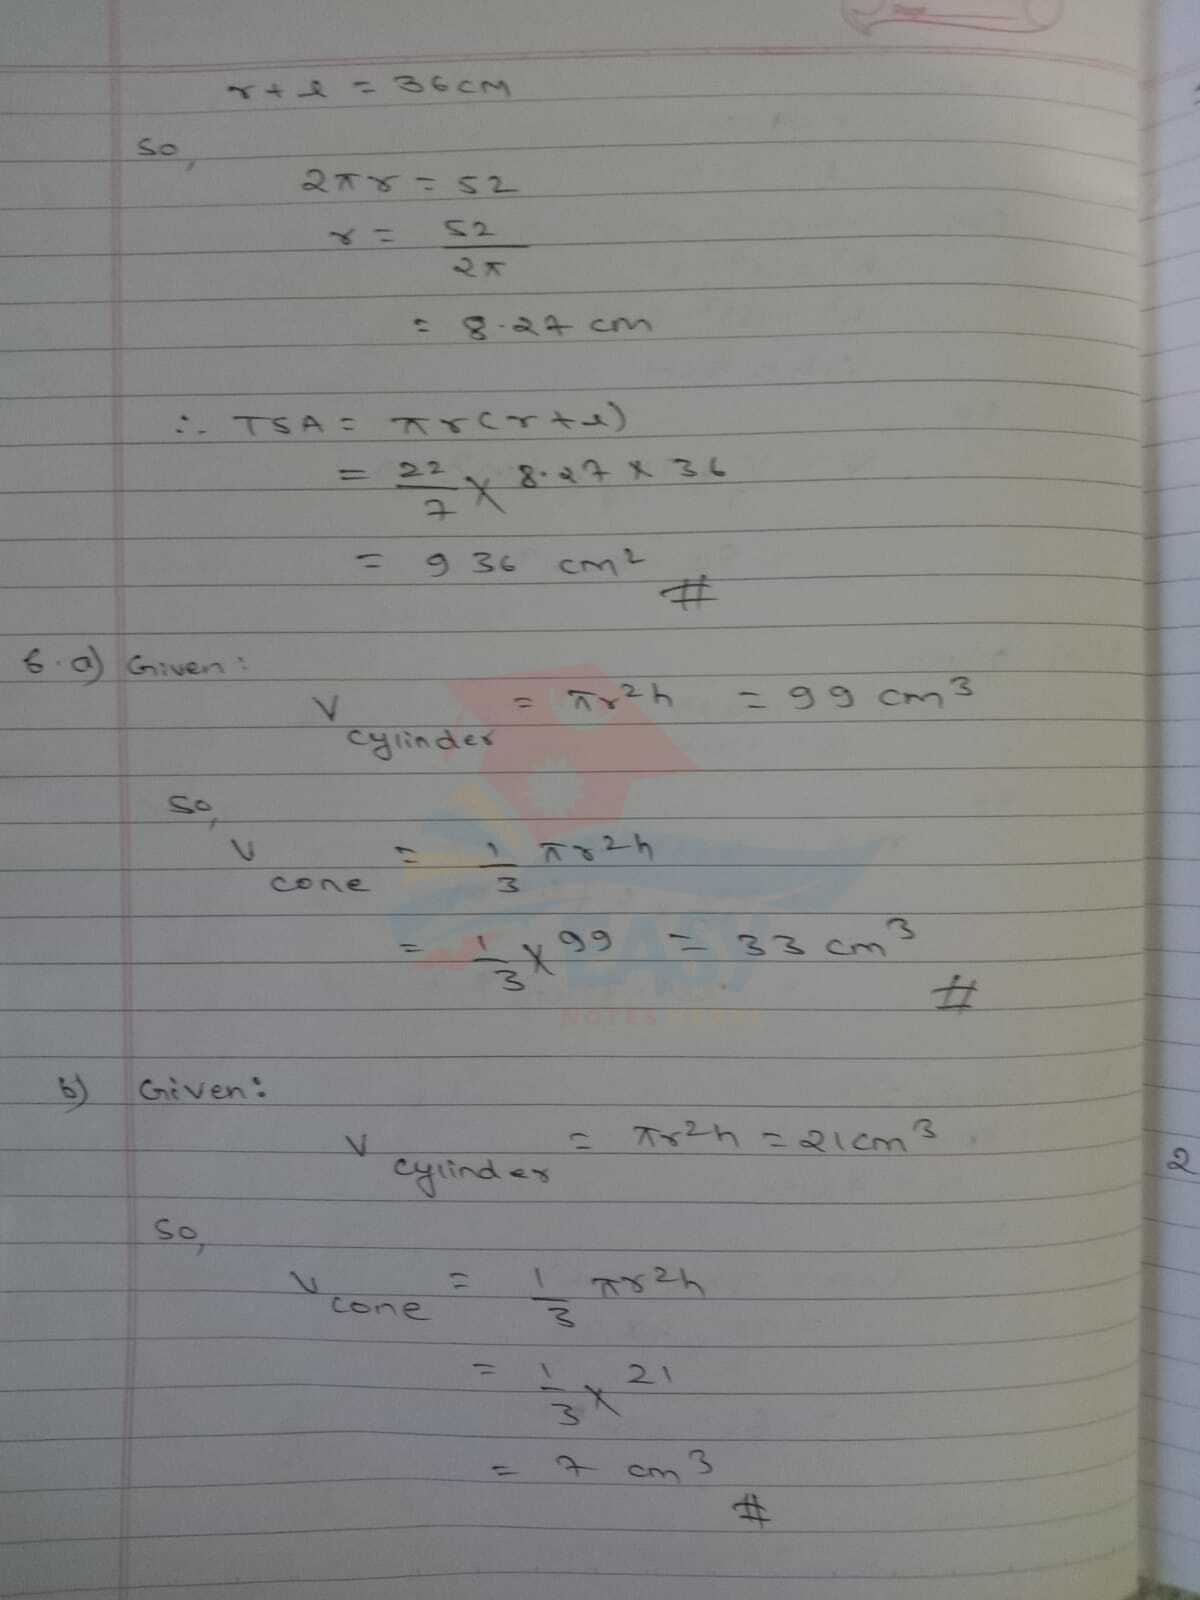 r + l = 36 cm
So,
2πr = 52
r = 52/2π
= 8.27 cm
∴ TSA = πr(r + l)
= 22/7 × 8.27 × 36
= 936 cm²
#
6. a) Given:
V cylinder = πr²h = 99 cm³
So,
V cone = 1/3 πr²h
= 1/3 × 99 = 33 cm³
#
EASY
NOTES
b) Given:
V cylinder = πr²h = 21 cm³
2
So,
V cone = 1/3 πr²h
= 1/3 × 21
= 7 cm³
#